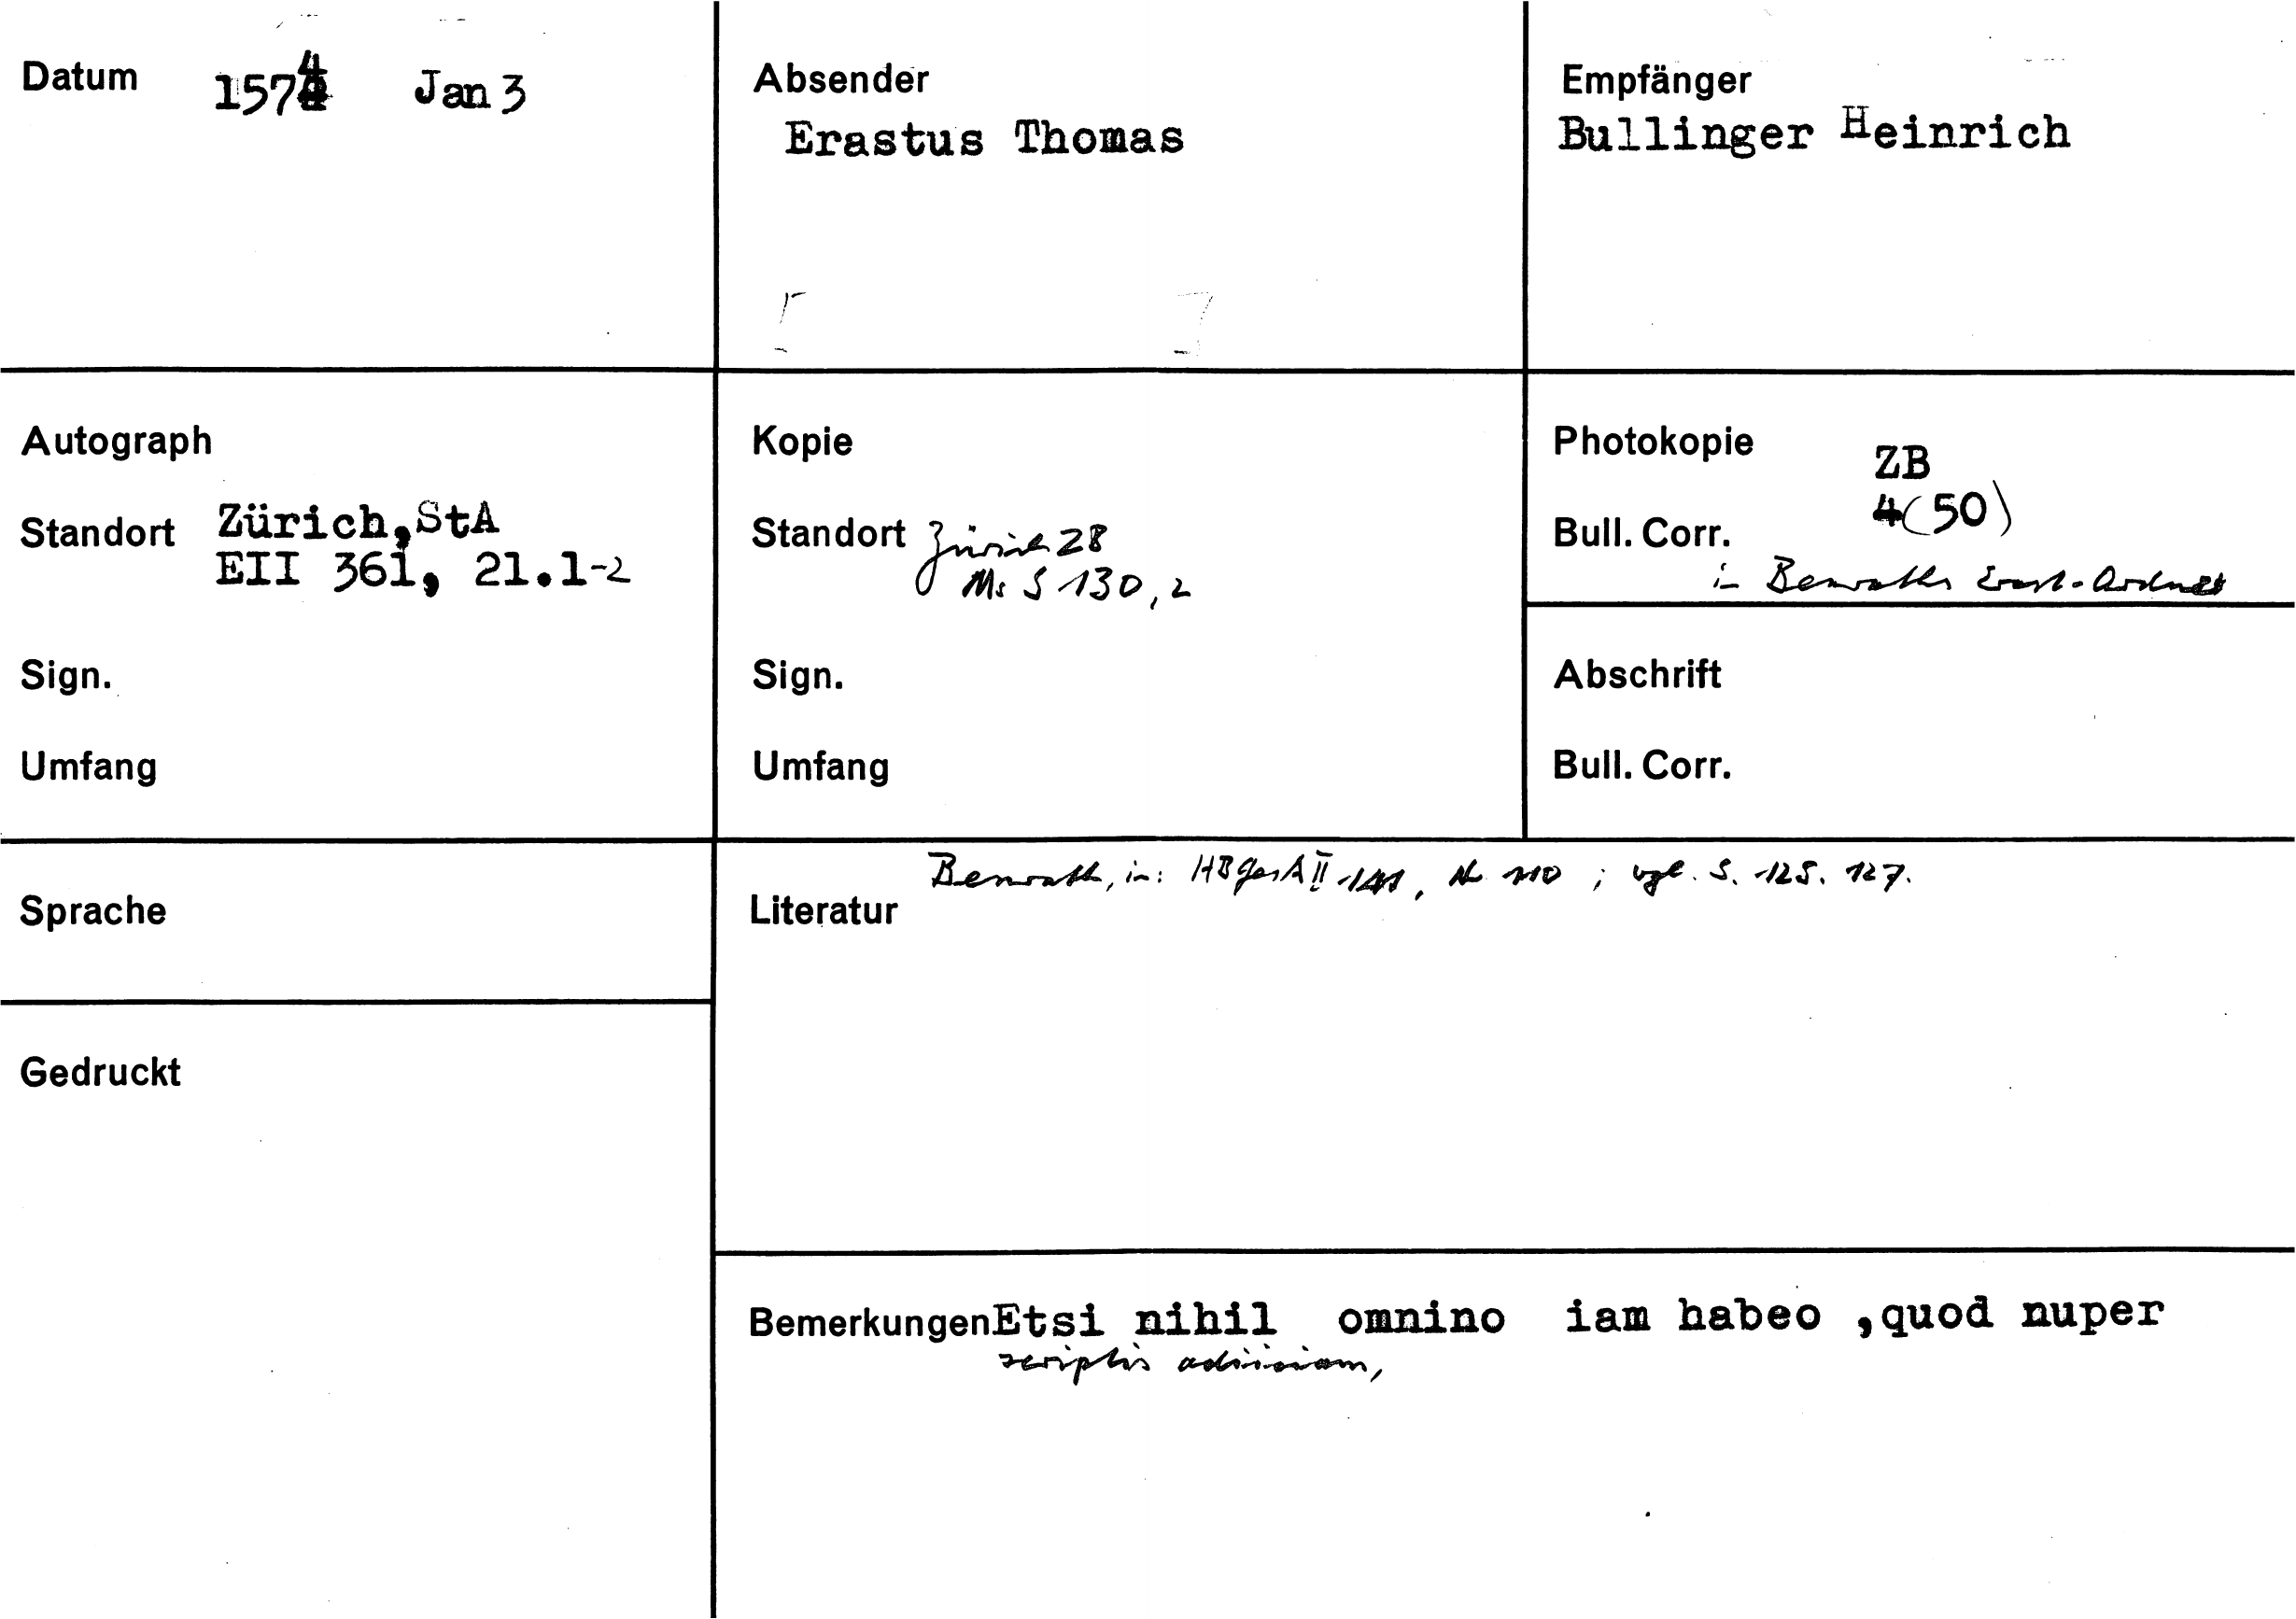 Datum 1574 Jan 3
Absender
Erastus Thomas
Empfänger
Bullinger Heinrich
Autograph
Standort Zürich, StA
EII 361, 21.1-2
Sign.
Umfang
Kopie
Standort Zürich ZB
Ms S 130, 2
Sign.
Umfang
Photokopie ZB
Bull. Corr. 4(50)
in Benraths Erast-Ordner
Abschrift
Bull. Corr.
Sprache
Gedruckt
Benrath, in: HBGesA II 141, Nr 110 ; vgl. S. 125. 127.
Literatur
Bemerkungen Etsi nihil omnino iam habeo ,quod nuper
scriptis adiiciam,